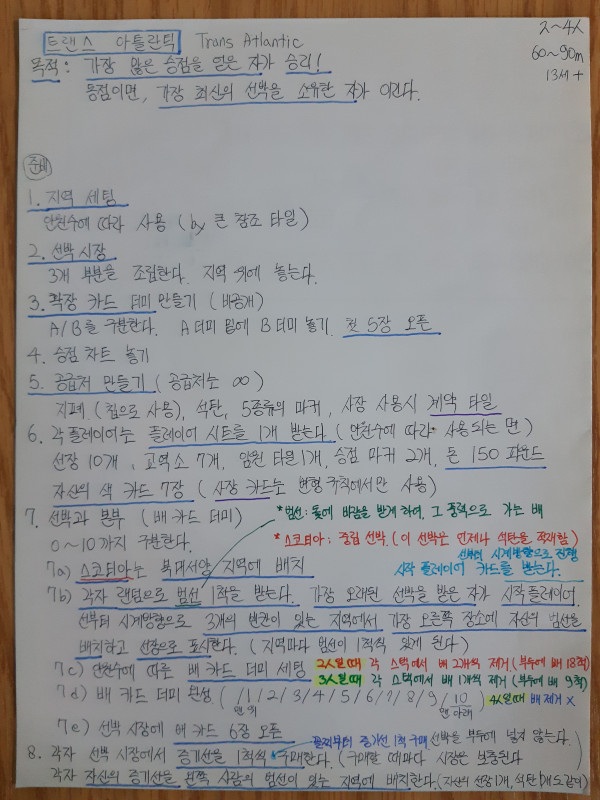 트랜스 아틀란틱 Trans Atlantic
2~4人
60~90m
13세+
목적: 가장 많은 승점을 얻은 자가 승리!
동점이면, 가장 최신의 선박을 소유한 자가 이긴다.
준비
1. 지역 세팅
인원수에 따라 사용 (by 큰 참조 타일)
2. 선박 시장
3개 부분을 조립한다. 지역 위에 놓는다.
3. 확장 카드 더미 만들기 (비공개)
A/B를 구분한다. A더미 밑에 B더미 놓기. 첫 5장 오픈
4. 승점 차트 놓기
5. 공급처 만들기 (공급처는 ∞)
지폐 (칩으로 사용), 석탄, 5종류의 마커, 사장 사용시 계약 타일
6. 각 플레이어는 플레이어 시트를 1개 받는다. (인원수에 따라 사용되는 면)
선장 10개, 교역소 7개, 임원 타일 1개, 승점 마커 2개, 돈 150 파운드
자신의 색 카드 7장 (사장 카드는 변형 규칙에서만 사용)
7. 선박과 본부 (배 카드 더미)
*범선: 돛에 바람을 받게 하여, 그 풍력으로 가는 배
0~10까지 구분한다.
*스코티아: 중립 선박. (이 선박은 언제나 석탄을 적재함)
7a) 스코티아는 북대서양 지역에 배치
선부터 시계방향으로 진행
시작 플레이어 카드를 받는다.
7b) 각자 랜덤으로 범선 1척을 받는다. 가장 오래된 선박을 받은 자가 시작 플레이어.
선부터 시계방향으로 3개의 빈칸이 있는 지역에서 가장 오른쪽 장소에 자신의 범선을
배치하고 선장으로 표시한다. (지역마다 범선이 1척씩 있게 된다)
7c) 인원수에 따른 배 카드 더미 세팅 2人일때 각 스택에서 배 2개씩 제거 (본부에 배 18척)
3人일때 각 스택에서 배 1개씩 제거 (본부에 배 9척)
7d) 배 카드 더미 완성 ( /1/2/3/4/5/6/7/8/9/10 ) 4人일때 배 제거 X
맨 위 맨 아래
7e) 선박 시장에 배 카드 6장 오픈
증기선 1척 구매 선박을 본부에 넣지 않는다.
8. 각자 선박 시장에서 증기선을 1척씩 구매한다. (구매할 때마다 시장은 보충된다)
각자 자신의 증기선을 왼쪽 사람의 범선이 있는 지역에 배치한다. (자신의 선장 1개, 석탄 1개도 같이)